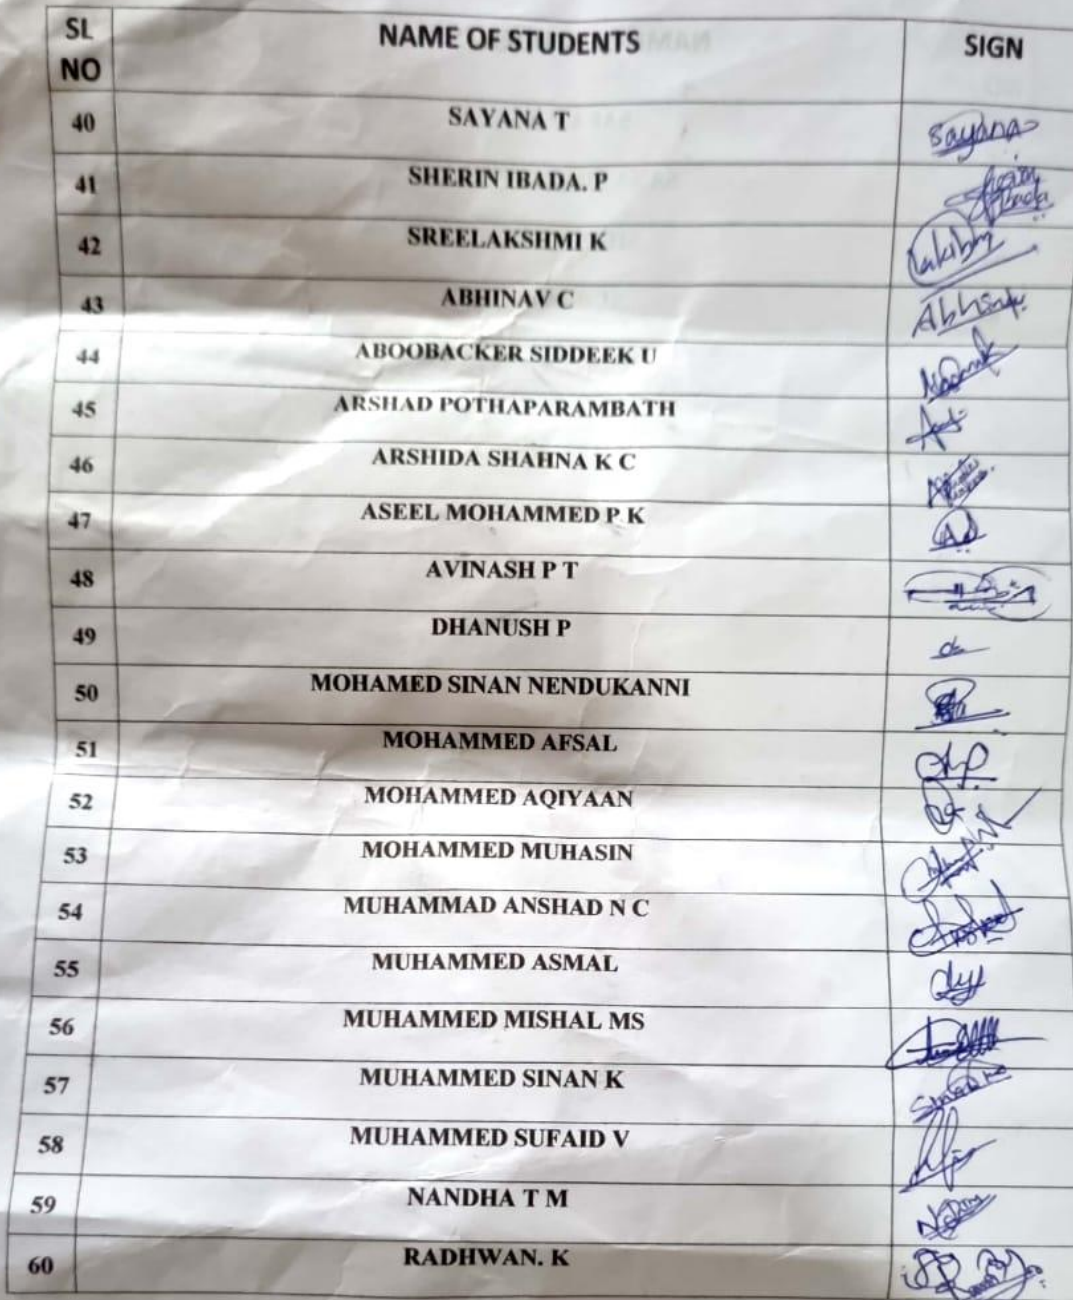 SL NO NAME OF STUDENTS SIGN
40 SAYANA T Sayana
41 SHERIN IBADA. P
42 SREELAKSHMI K
43 ABHINAV C
44 ABOOBACKER SIDDEEK U
45 ARSHAD POTHAPARAMBATH
46 ARSHIDA SHAHNA K C
47 ASEEL MOHAMMED P K
48 AVINASH P T
49 DHANUSH P
50 MOHAMED SINAN NENDUKANNI
51 MOHAMMED AFSAL
52 MOHAMMED AQIYAAN
53 MOHAMMED MUHASIN
54 MUHAMMAD ANSHAD N C
55 MUHAMMED ASMAL
56 MUHAMMED MISHAL MS
57 MUHAMMED SINAN K
58 MUHAMMED SUFAID V
59 NANDHA T M
60 RADHWAN. K